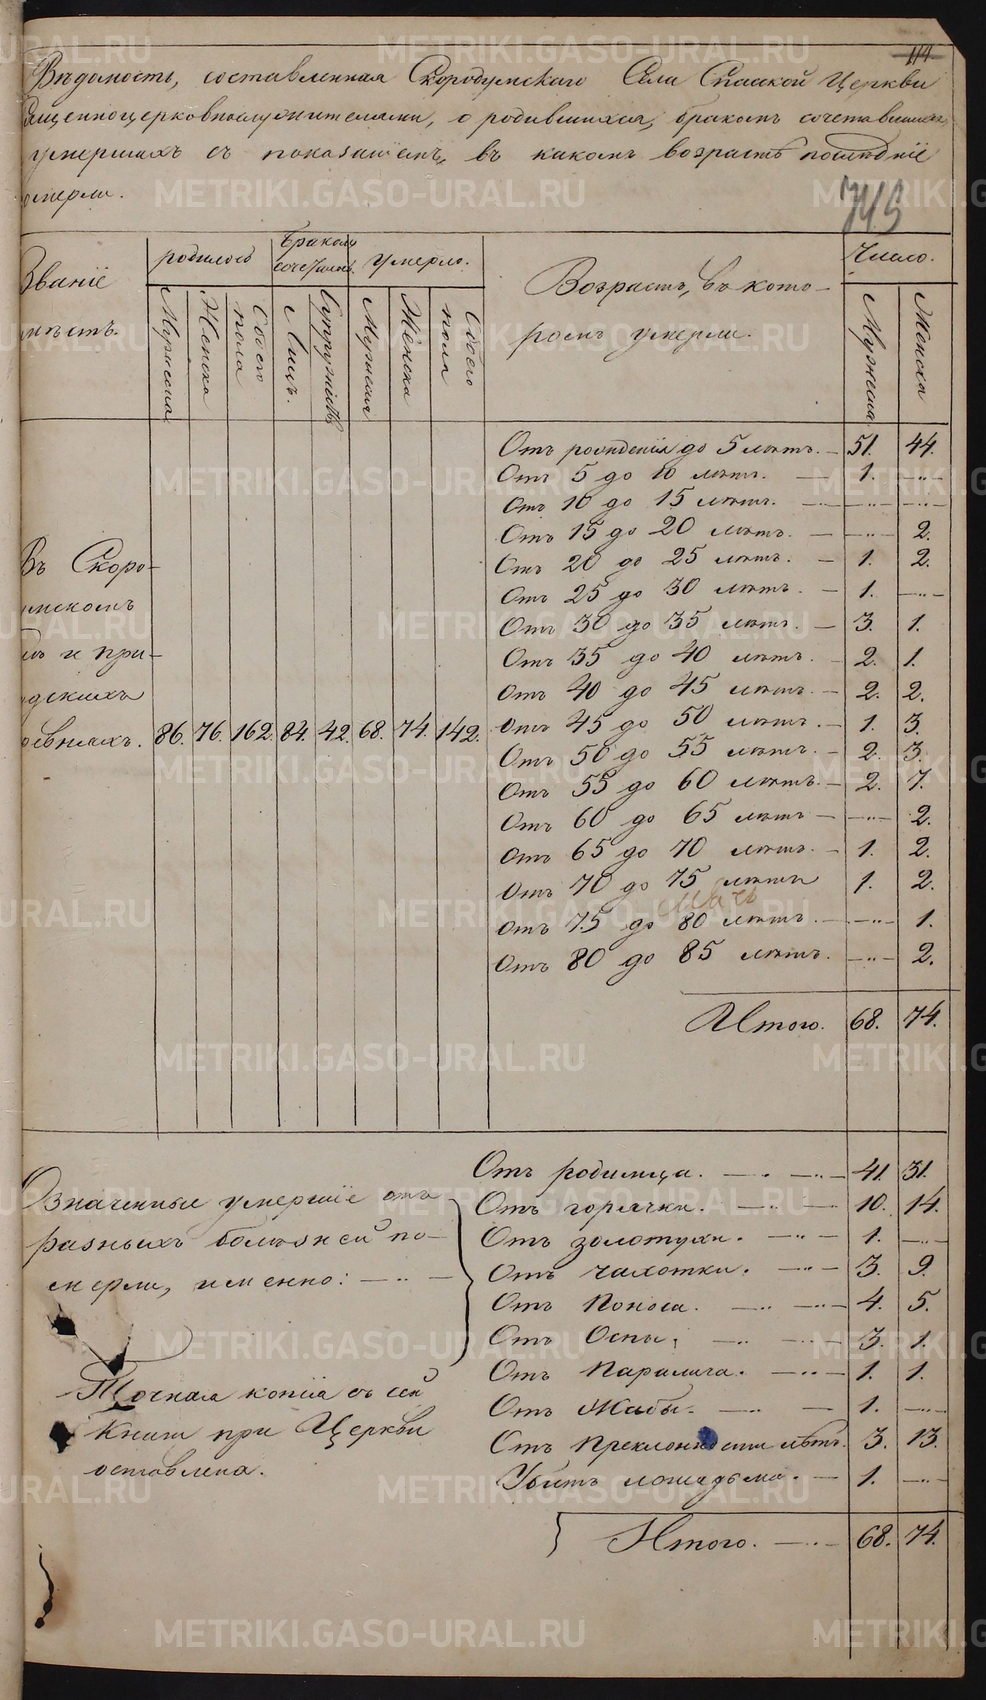 114
Вѣдомость, составленная Скородумскаго Села Спасской Церкви
священноцерковнослужителями, о родившихся, бракомъ сочетавшихся,
умершихъ съ показаніемъ, въ какомъ возрастѣ послѣдніе
померли.
745
Званіе мѣстъ.
родилось
бракомъ сочетались
умерло.
Возрастъ, въ кото-
ромъ умерли.
Число.
Мужеска
Женска
Обоего пола
Лицъ.
Супружествъ
Мужеска
Женска
Обоего пола
Мужеска
Женска
Отъ рожденія до 5 лѣтъ. — 51. 44.
Отъ 5 до 10 лѣтъ. — 1. —„—
Отъ 10 до 15 лѣтъ. —„— —„— —„—
Отъ 15 до 20 лѣтъ. — —„— 2.
Отъ 20 до 25 лѣтъ. — 1. 2.
Отъ 25 до 30 лѣтъ. — 1. —„—
Отъ 30 до 35 лѣтъ. — 3. 1.
Отъ 35 до 40 лѣтъ. — 2. 1.
Отъ 40 до 45 лѣтъ. — 2. 2.
Отъ 45 до 50 лѣтъ. — 1. 3.
Отъ 50 до 55 лѣтъ. — 2. 3.
Отъ 55 до 60 лѣтъ. — 2. 7.
Отъ 60 до 65 лѣтъ — —„— 2.
Отъ 65 до 70 лѣтъ. — 1. 2.
Отъ 70 до 75 лѣтъ 1. 2.
Отъ 75 до 80 лѣтъ. — —„— 1.
Отъ 80 до 85 лѣтъ. —„— 2.
Въ Скоро-
думскомъ
и при-
ходскихъ
деревняхъ. 86. 76. 162. 84. 42. 68. 74. 142.
Итого. 68. 74.
Означенные умершіе отъ
разныхъ болѣзней по-
мерли, именно: —„—
Отъ родимца. — 41. 31.
Отъ горячки. — 10. 14.
Отъ золотухи. — 1. —„—
Отъ чахотки. — 3. 9.
Отъ Поноса. — 4. 5.
Отъ Оспы. — 3. 1.
Отъ Паралича. — 1. 1.
Отъ Жабы. — 1. —„—
Отъ Преклонности лѣтъ. 3. 13.
Убитъ лошадьми. — 1. —„—
Точная копія съ сей
Книги при Церкви
оставлена.
Итого. — 68. 74.
METRIKI.GASO-URAL.RU